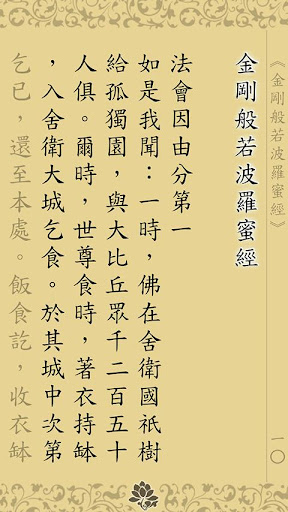 《金剛般若波羅蜜經》
一〇
金剛般若波羅蜜經
法會因由分第一
如是我聞：一時，佛在舍衛國祇樹
給孤獨園，與大比丘眾千二百五十
人俱。爾時，世尊食時，著衣持鉢
，入舍衛大城乞食。於其城中次第
乞已，還至本處。飯食訖，收衣鉢